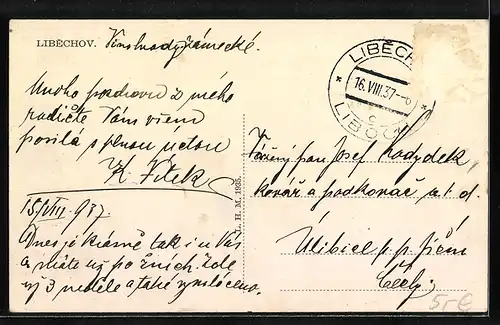 LIBĚCHOV. Vinohrady zámecké.
Mnoho pozdravů z mého
radiště Vám všem
posílá s plnou úctou
K. Vítek
15/VIII 937
Dnes je krásně tak i u Vás
a máte už po žních zde
už 3 neděle a také vymláceno.
L. H. M. 1935.
LIBĚCH
16.VIII.37
c
Vážený pan Josef
kovář a podkovář a t. d.
Úlibice p. p. Jičín
Čechy
5,-€